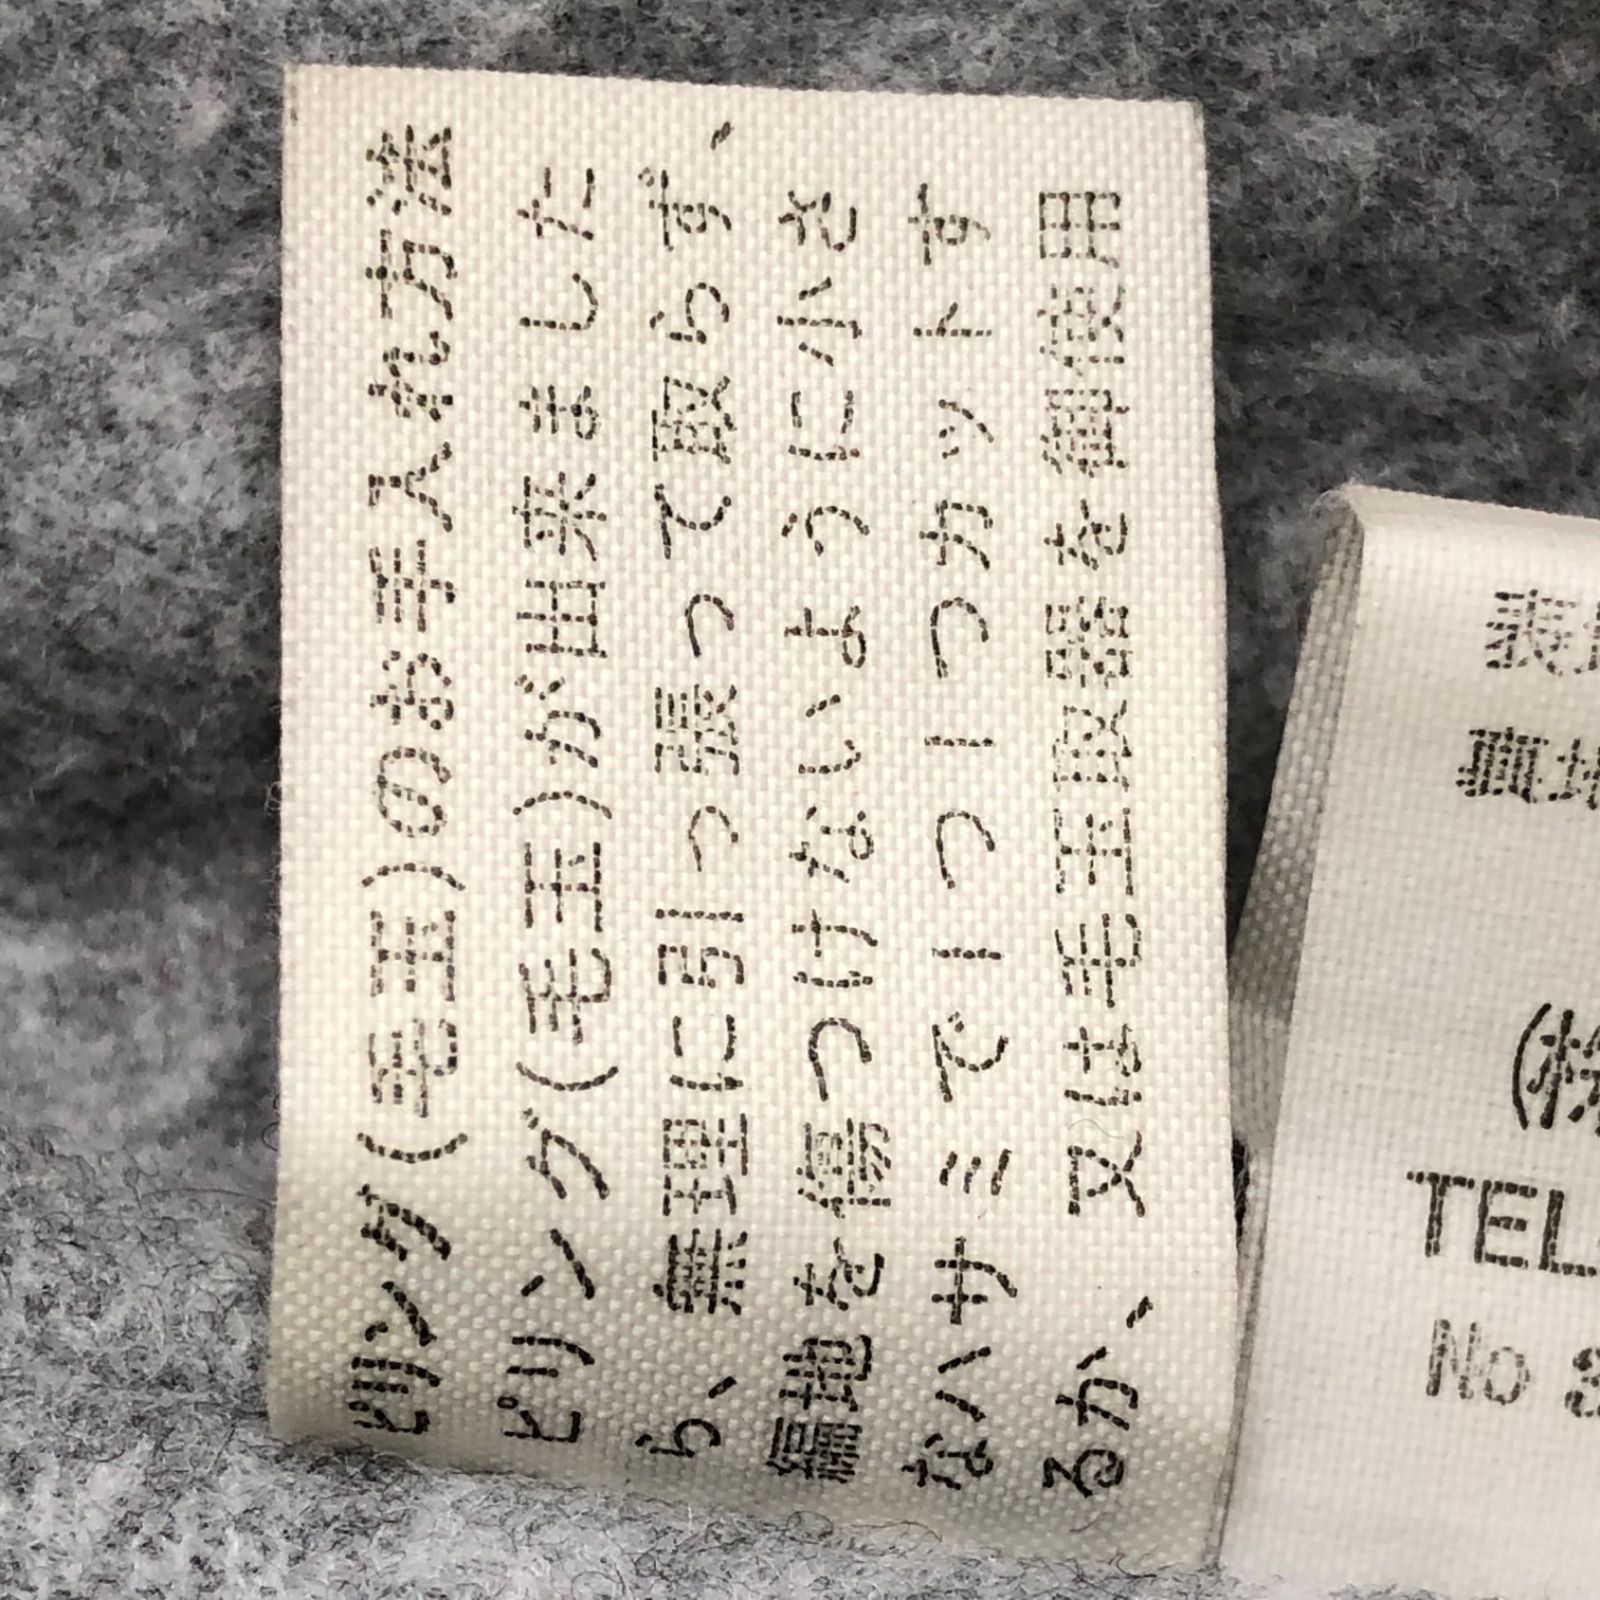 ピリング(毛玉)のお手入れ方法
ピリング(毛玉)が出来ました
ら、無理に引っ張って取らず、
編地を傷つけないように小さ
なハサミで一つ一つカットす
るか、又は毛玉取器を御使用
(株
TEL
No